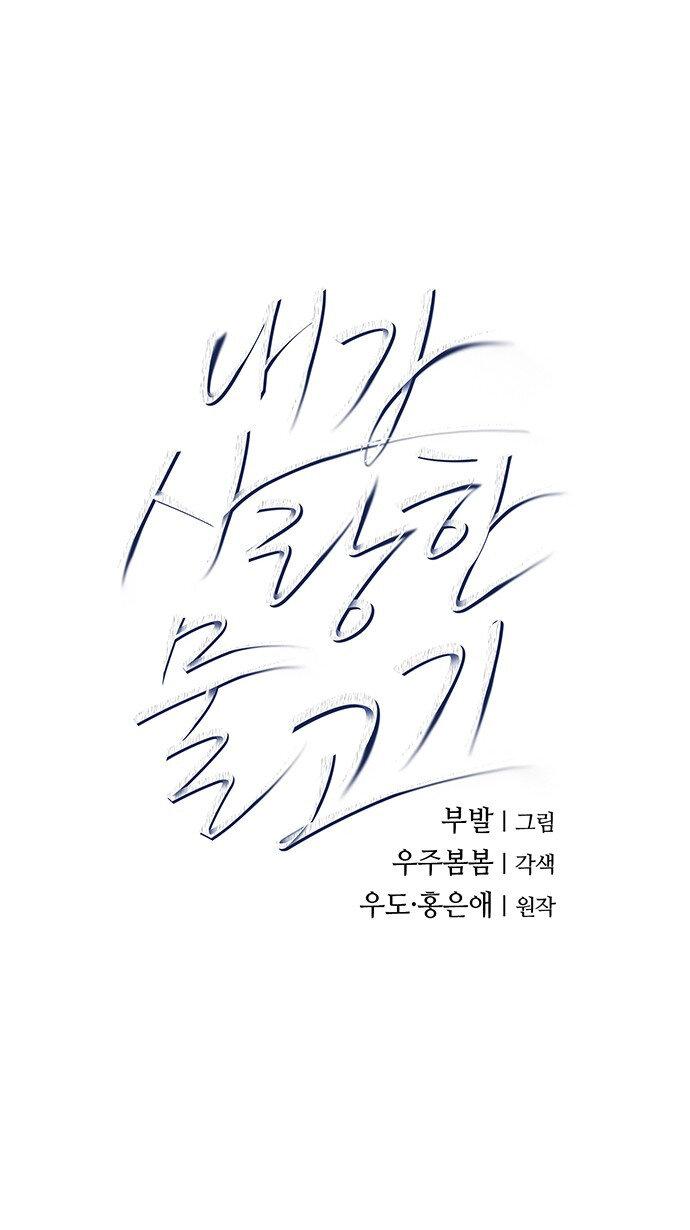 내가
사랑한
물고기
부발 | 그림
우주봄봄 | 각색
우도·홍은애 | 원작